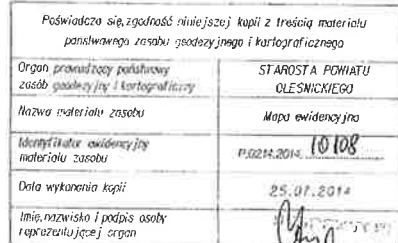 Poświadcza się zgodność niniejszej kopii z treścią materiału
państwowego zasobu geodezyjnego i kartograficznego
Organ prowadzący państwowy
zasób geodezyjny i kartograficzny
STAROSTA POWIATU
OLEŚNICKIEGO
Nazwa materiału zasobu
Mapa ewidencyjna
Identyfikator ewidencyjny
materiału zasobu
P.0214.2014. 10108
Data wykonania kopii
25.07.2014
Imię, nazwisko i podpis osoby
reprezentującej organ